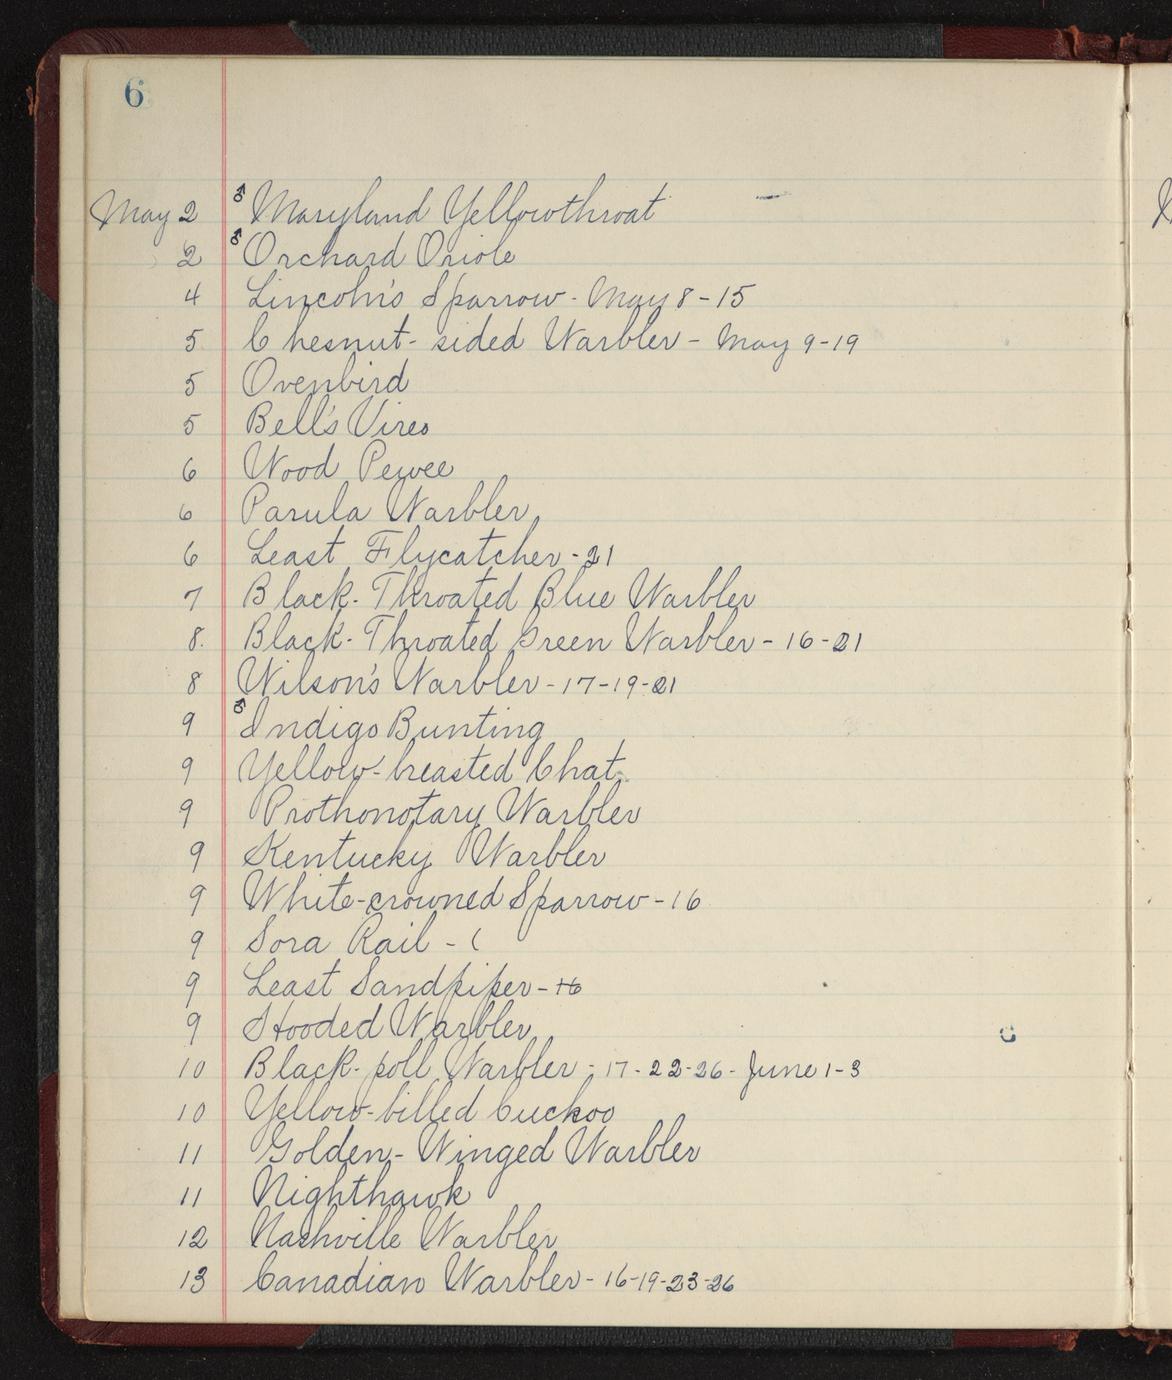 6
May 2 ♂ Maryland Yellowthroat –
2 ♂ Orchard Oriole
4 Lincoln's Sparrow - May 8-15
5 Chesnut-sided Warbler - May 9-19
5 Ovenbird
5 Bell's Vireo
6 Wood Pewee
6 Parula Warbler
6 Least Flycatcher - 21
7 Black-Throated Blue Warbler
8. Black-Throated Green Warbler - 16-21
8 Wilson's Warbler - 17-19-21
9 ♂ Indigo Bunting
9 Yellow-breasted Chat
9 Prothonotary Warbler
9 Kentucky Warbler
9 White-crowned Sparrow - 16
9 Sora Rail - (
9 Least Sandpiper - 16
9 Hooded Warbler
10 Black-poll Warbler - 17-22-26-June 1-3
10 Yellow-billed Cuckoo
11 Golden-Winged Warbler
11 Nighthawk
12 Nashville Warbler
13 Canadian Warbler - 16-19-23-26